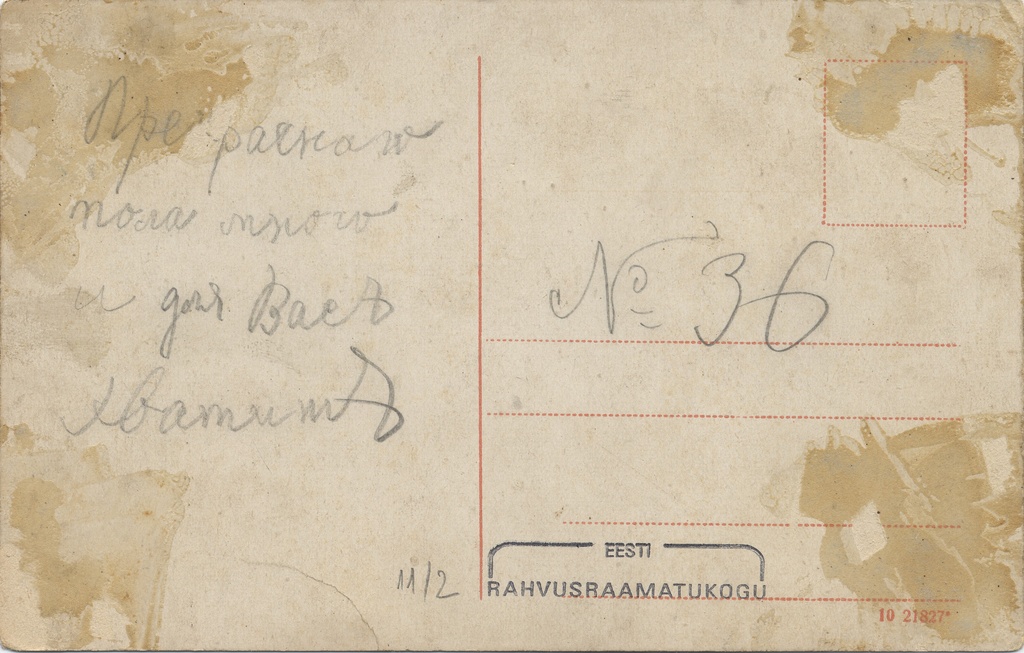 Прекраснаго
пола много
и для Васъ
хватитъ
№ 36
11/2
EESTI
RAHVUSRAAMATUKOGU
10 21827*